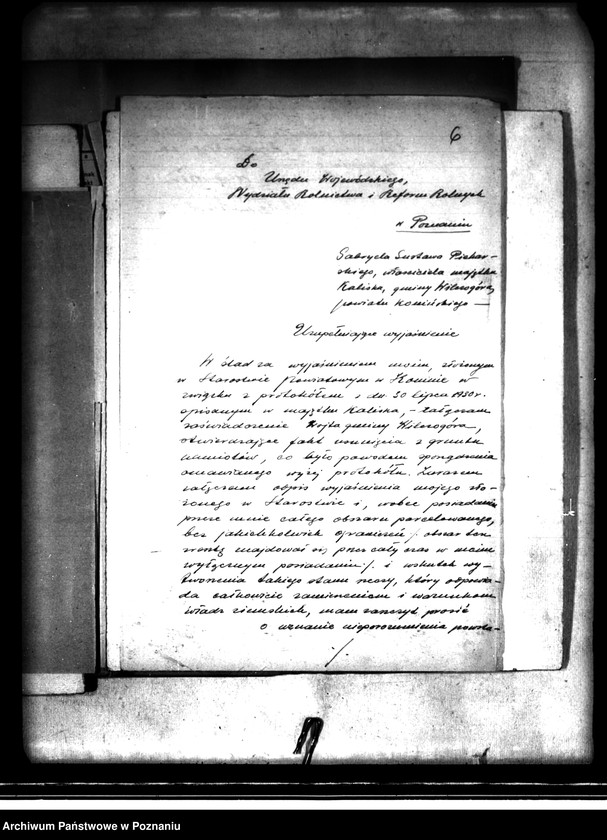 6
Do
Urzędu Wojewódzkiego,
Wydziału Rolnictwa i Reform Rolnych
w Poznaniu
Gabryela Gustawa Piekar-
skiego, właściciela majątku
Kaliska, gminy Wilczogóra,
powiatu konińskiego —
Uzupełniające wyjaśnienie
W ślad za wyjaśnieniem moim, złożonym
w Starostwie Powiatowym w Koninie w
związku z protokółem z dn. 30 lipca 1930 r.
spisanym w majątku Kaliska, - załączam
zaświadczenie Wójta gminy Wilczogóra,
stwierdzające fakt usunięcia z gruntu
namiotów, co było powodem sporządzenia
omawianego wyżej protokółu. Zarazem
załączam odpis wyjaśnienia mojego zło-
żonego w Starostwie i, wobec posiadania
przeze mnie całego obszaru parcelowanego,
bez jakichkolwiek ograniczeń /: obszar ten
zresztą znajdował się przez cały czas w moim
wyłącznym posiadaniu :/ i wskutek wy-
tworzenia takiego stanu rzeczy, który odpowia-
da całkowicie zamierzeniom i warunkom
władz ziemskich, mam zaszczyt prosić
o uznanie nieporozumienia powsta-
./.
Archiwum Państwowe w Poznaniu